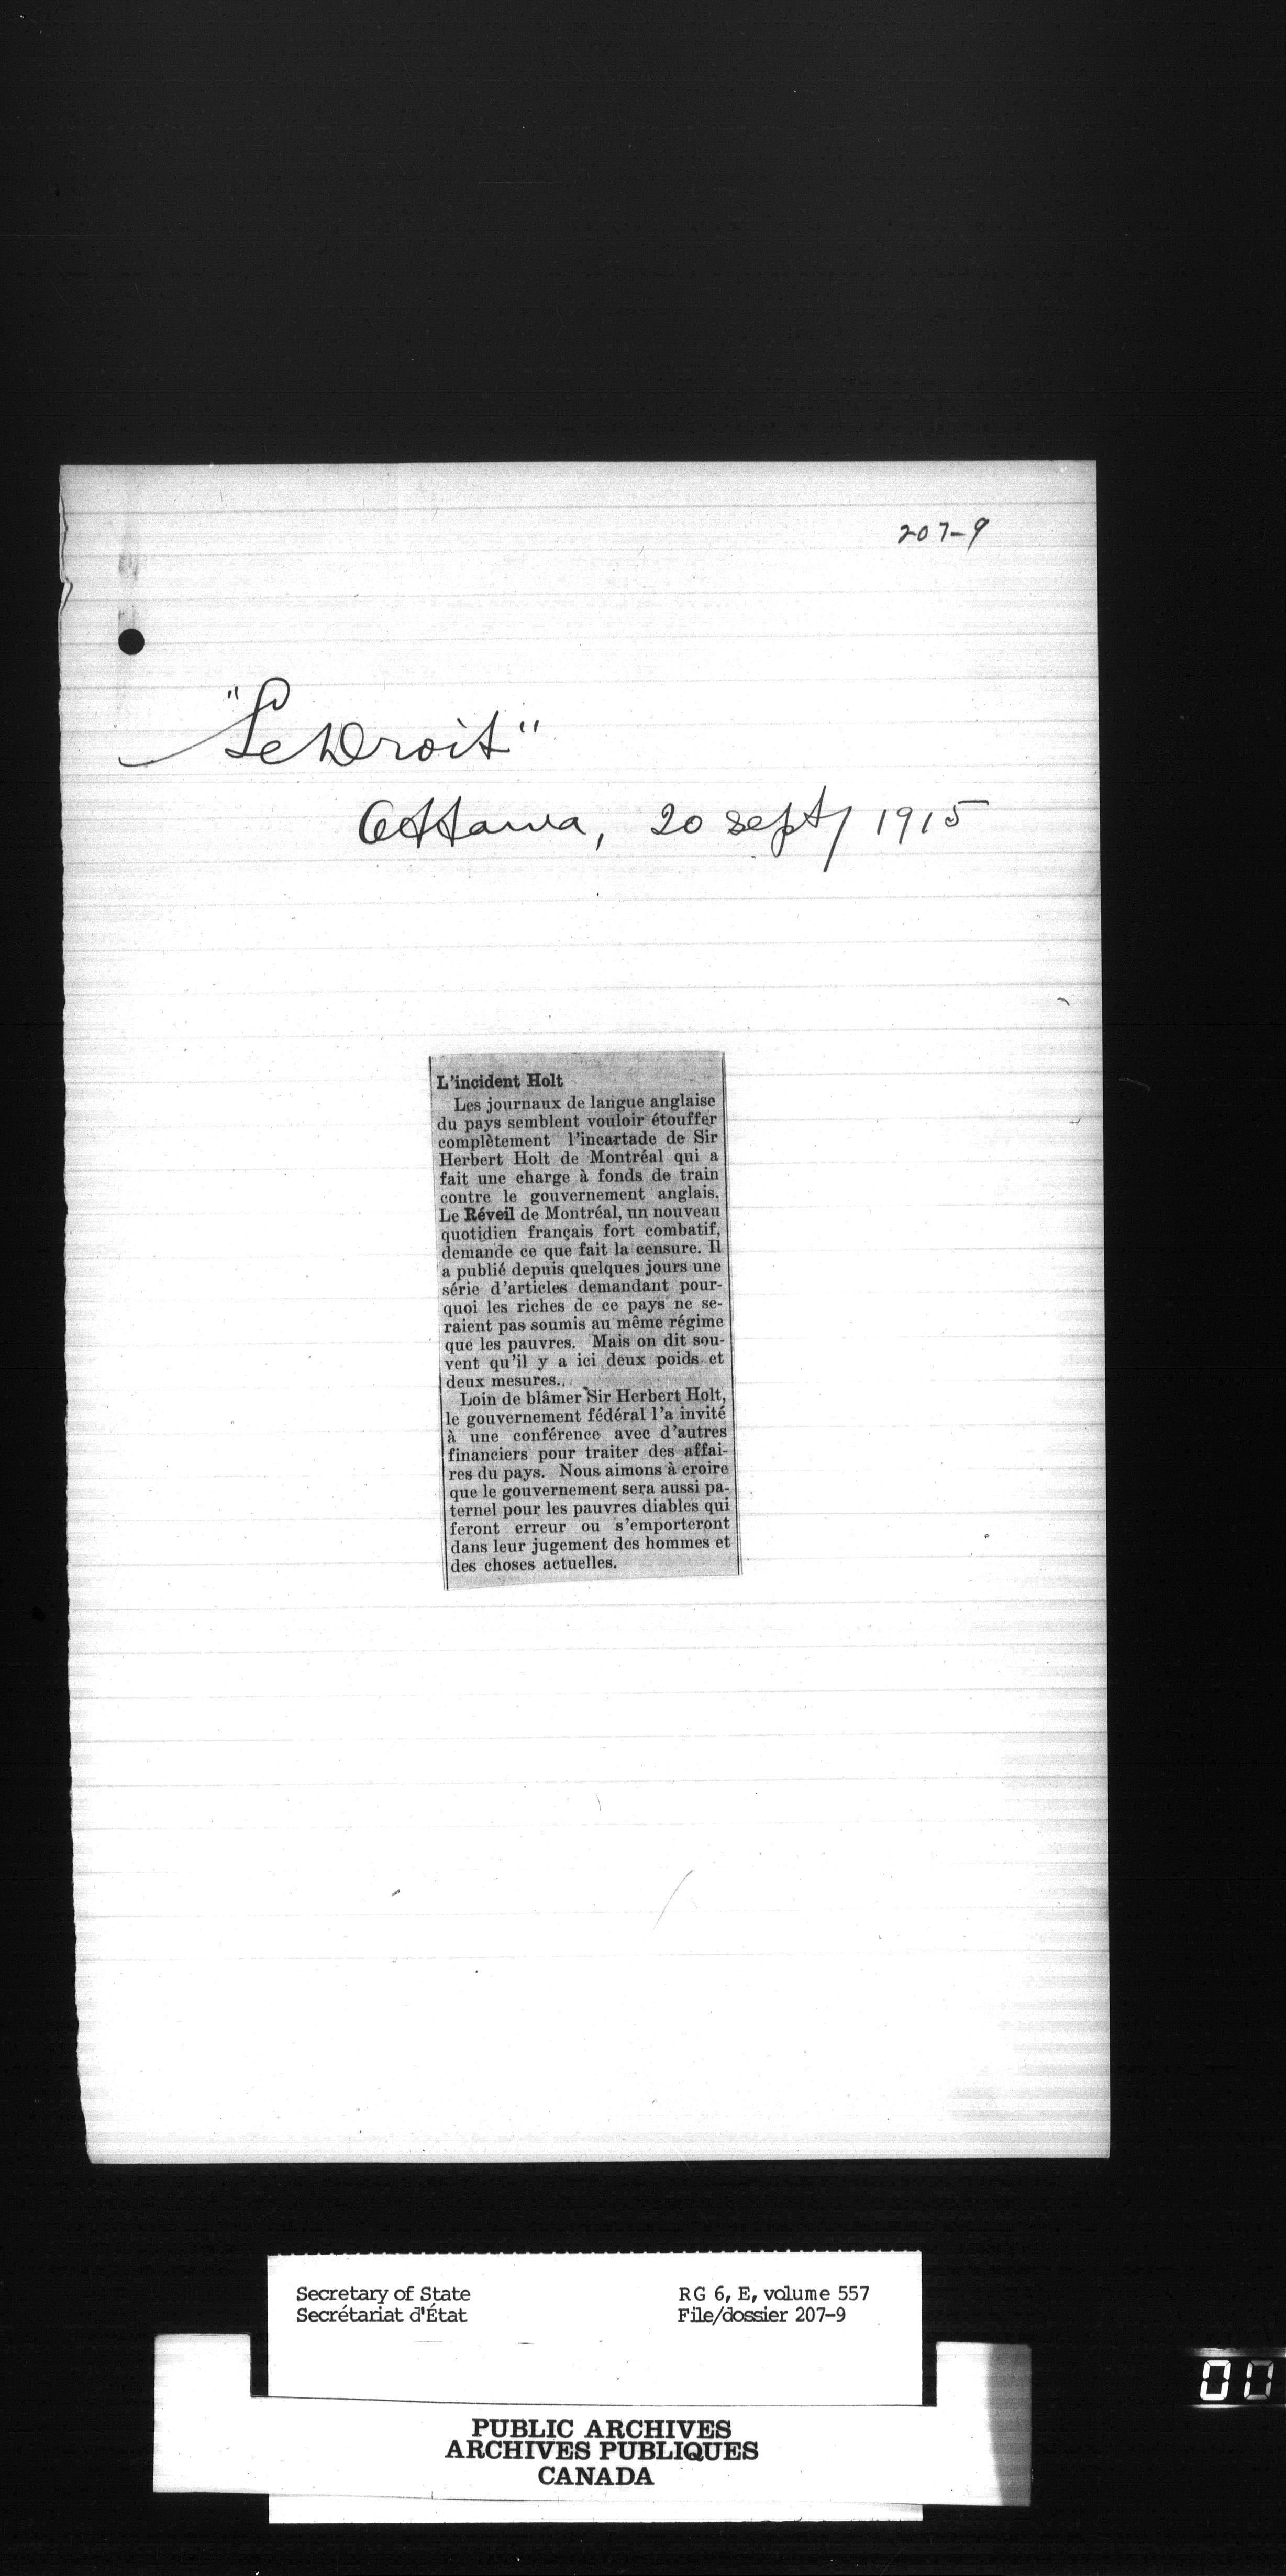 207-9
"Le Droit"
Ottawa, 20 sept/ 1915
L'incident Holt
Les journaux de langue anglaise
du pays semblent vouloir étouffer
complètement l'incartade de Sir
Herbert Holt de Montréal qui a
fait une charge à fonds de train
contre le gouvernement anglais.
Le Réveil de Montréal, un nouveau
quotidien français fort combatif,
demande ce que fait la censure. Il
a publié depuis quelques jours une
série d'articles demandant pour-
quoi les riches de ce pays ne se-
raient pas soumis au même régime
que les pauvres. Mais on dit sou-
vent qu'il y a ici deux poids et
deux mesures..
Loin de blâmer Sir Herbert Holt,
le gouvernement fédéral l'a invité
à une conférence avec d'autres
financiers pour traiter des affai-
res du pays. Nous aimons à croire
que le gouvernement sera aussi pa-
ternel pour les pauvres diables qui
feront erreur ou s'emporteront
dans leur jugement des hommes et
des choses actuelles.
Secretary of State
Secrétariat d'État
RG 6, E, volume 557
File/dossier 207-9
00
PUBLIC ARCHIVES
ARCHIVES PUBLIQUES
CANADA